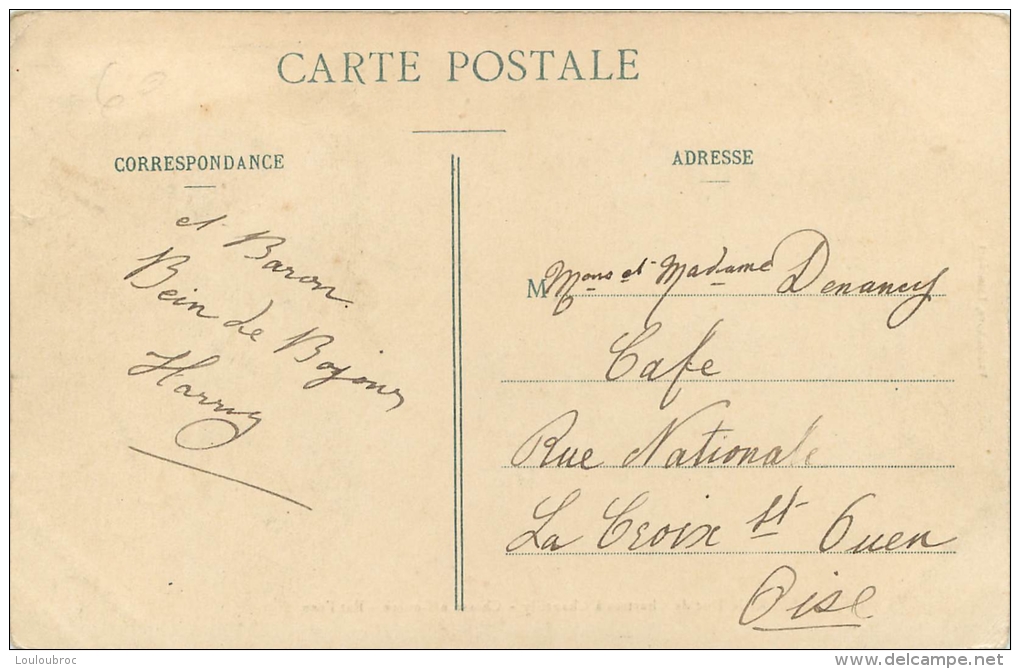 60
CARTE POSTALE
CORRESPONDANCE
ADRESSE
et Baron.
Bein de Bojour
Harry
M Mons et Madame Denancy
Cafe
Rue Nationale
La Croix St Ouen
Oise
Louloubroc
delcampe.net